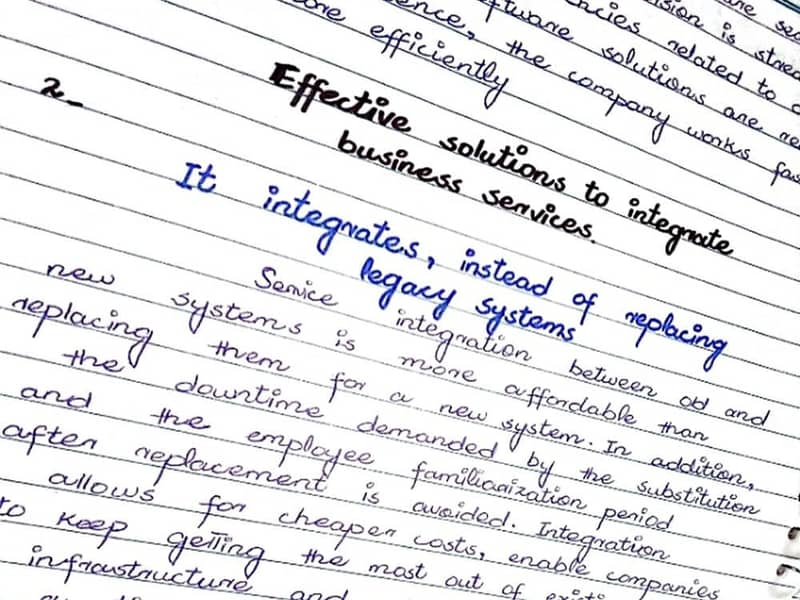 are sec
ncies
vision is stored
ence,
software solutions are re
related to a
more efficiently
the company works fas
2-
Effective solutions to integrate
business services.
It integrates, instead of replacing
legacy systems
Service integration between old and
new systems is more affordable than
replacing them for a new system. In addition,
the downtime demanded by the substitution
and the employee familiarization period
after replacement is avoided. Integration
allows for cheaper costs, enable companies
to keep getting the most out of
infraustructure and